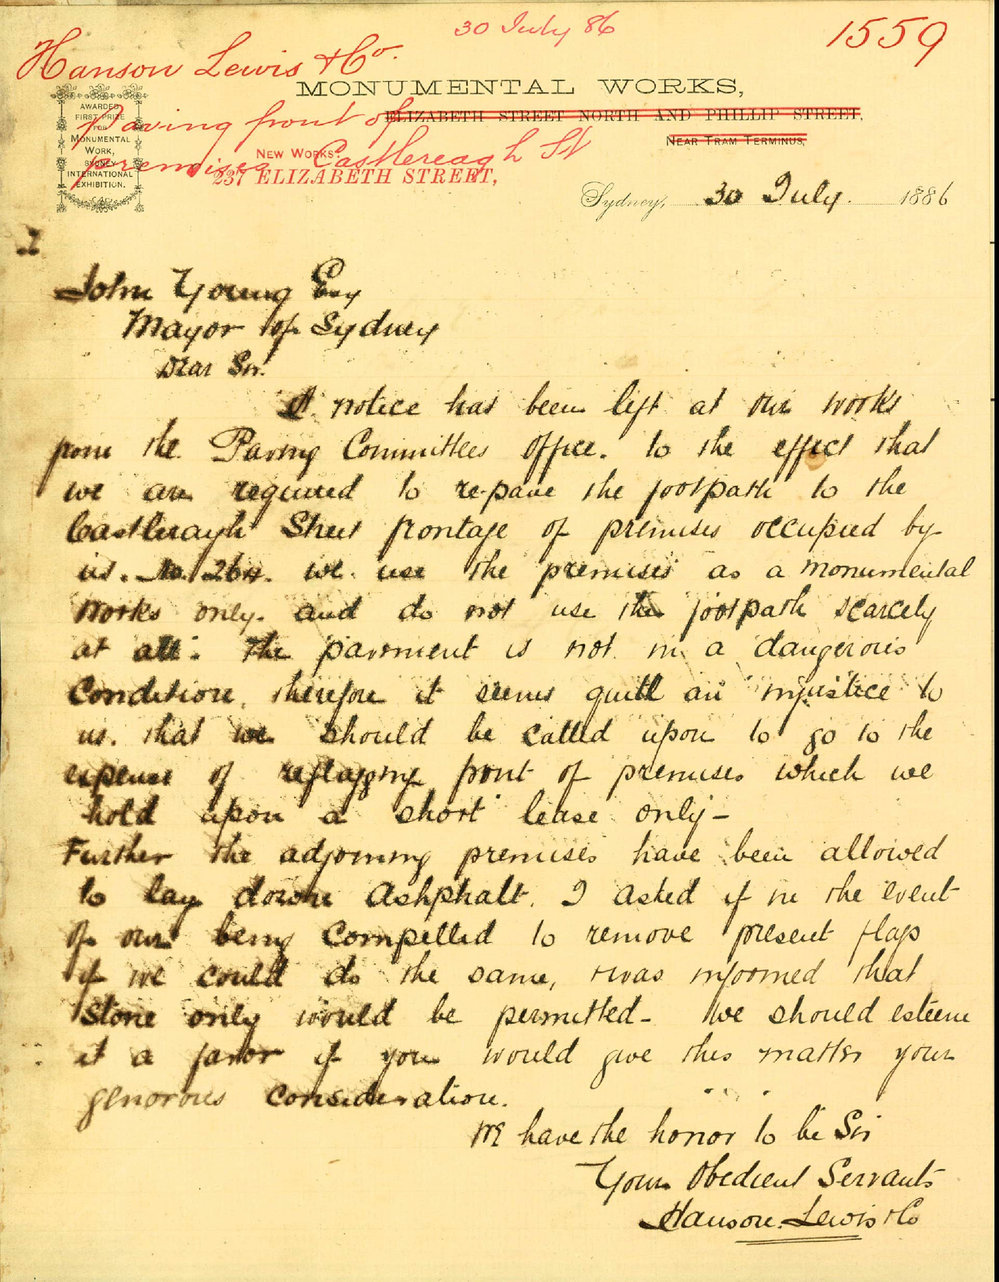 30 July 86
1559
Hanson Lewis & Co.
Paving front of
premises Castlereagh St
MONUMENTAL WORKS,
ELIZABETH STREET NORTH AND PHILLIP STREET,
NEAR TRAM TERMINUS,
AWARDED
FIRST PRIZE
FOR
MONUMENTAL
WORK,
SYDNEY
INTERNATIONAL
EXHIBITION.
NEW WORKS:
237 ELIZABETH STREET,
Sydney, 30 July 1886
John Young Esq
Mayor of Sydney
Dear Sir.
A notice has been left at our works
from the Paving Committees office. to the effect that
we are required to re-pave the footpath to the
Castlereagh Street frontage of premises occupied by
us. No. 264. we use the premises as a monumental
works only. and do not use the footpath scarcely
at all. The pavement is not in a dangerous
condition, therefore it seems quite an injustice to
us. that we should be called upon to go to the
expense of reflagging front of premises which we
hold upon a short lease only-
Further the adjoining premises have been allowed
to lay down Ashphalt. I asked if in the event
of our being compelled to remove present flags
if we could do the same, & was informed that
stone only would be permitted- we should esteem
it a favor if you would give this matter your
generous consideration.
We have the honor to be Sir
Your Obedient Servants
Hanson. Lewis & Co